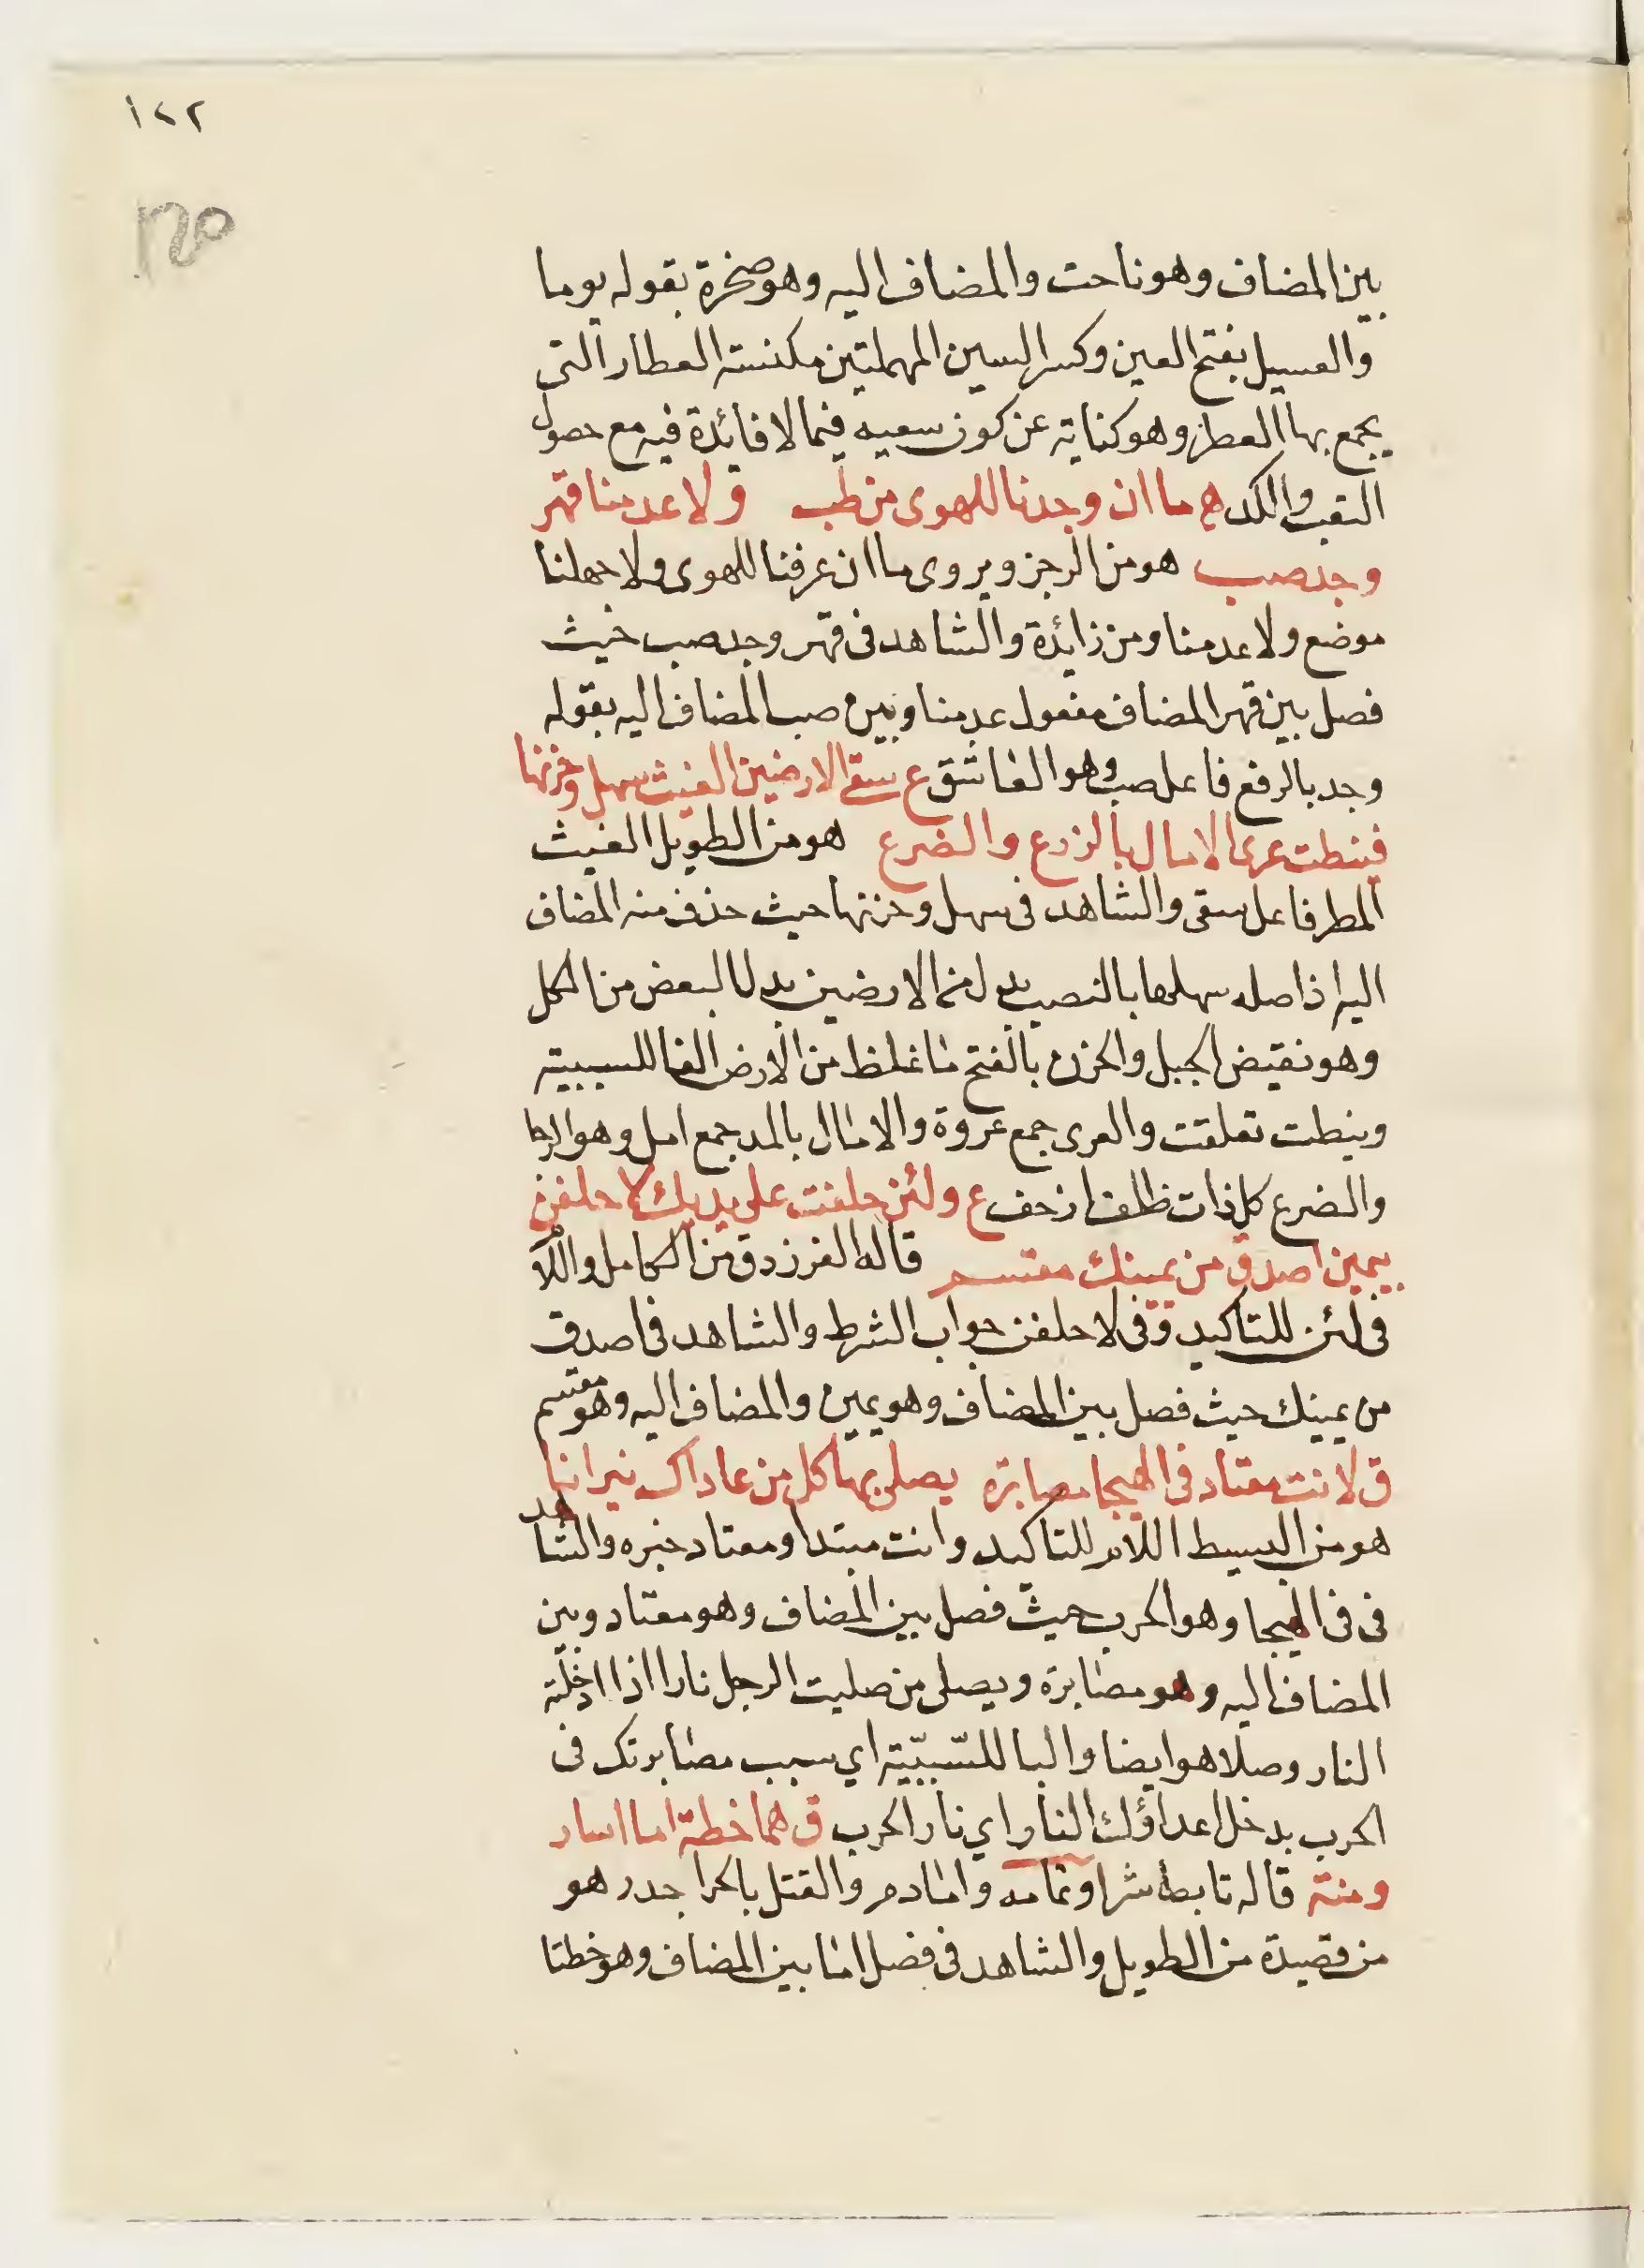 ١٢٢
١٢٥
بين المضاف وهو ناحت والمضاف اليه وهو صخرة بقوله يوما
والعسيل بفتح العين وكسر السين المهملتين مكنسة العطار التى
يجمع بها العطر وهو كناية عن كون سعيه فيما لا فائدة فيه مع حصول
التعب والكد ه‍ ما ان وجدنا للهوى من طب ولا عدمنا قهر
وجد صب هو من الرجز ويروى ما ان عرفنا للهوى ولا جهلنا
موضع ولا عدمنا ومن زائدة والشاهد فى قهر وجد صب حيث
فصل بين قهر المضاف مفعول عدمنا وبين صب المضاف اليه بقوله
وجد بالرفع فاعل صب وهو العاشق ع سقى الارضين الغيث سهل وحزنها
فنيطت عرى الامال بالزرع والضرع هو من الطويل الغيث
المطر فاعل سقى والشاهد فى سهل وحزنها حيث حذف منه المضاف
اليه اذ اصله سهلها بالنصب بدل من الارضين بدل البعض من الكل
وهو نقيض الجبل والحزن بالفتح ما غلظ من الارض الفا للسببية
ونيطت تعلقت والعرى جمع عروة والامال بالمد جمع امل وهو الرجا
والضرع كل ذات ظلف او خف ع ولئن حلفت على يديك لاحلفن
بيمين اصدق من يمينك مقسم قاله الفرزدق من الكامل واللا
فى لئن للتاكيد وفى لاحلفن جواب الشرط والشاهد فى اصدق
من يمينك حيث فصل بين المضاف وهو يمين والمضاف اليه وهو مقسم
ق لانت معتاد فى الهيجا مصابرة يصلى بها كل من عاداك نيرانا
هو من البسيط اللام للتاكيد وانت مبتدا ومعتاد خبره والشاهد
فى فى الهيجا وهو الحرب حيث فصل بين المضاف وهو معتاد وبين
المضاف اليه وهو مصابرة ويصلى من صليت الرجل نارا اذا ادخلته
النار وصلاها هو ايضا والبا للسّببيّة اي سبب مصابرتك فى
الحرب يدخل اعداؤك النار اي نار الحرب ق هما خطة اما اسار
ومنة قاله تابط شرا وتمامه واما دم والقتل بالحر اجدر هو
من قصيدة من الطويل والشاهد فى فصل اما بين المضاف وهو خطتا